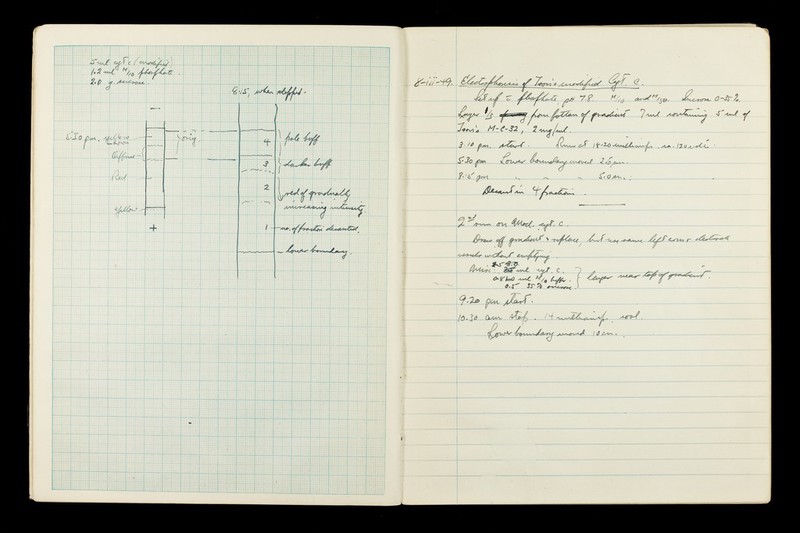 5 ml cyt c / modified
1.2 ml M/10 phosphate.
2.0 g sucrose.
8.15, when stopped.
−
6.30 pm. yellow brown
orig
4
pale buff
3
darker buff
Red
2
red of gradually increasing intensity.
yellow
1
no. of fraction decanted.
+
lower boundary.
8-iii-49. Electrophoresis of Tsou's modified Cyt. c.
Set up phosphate pH 7.8. M/10 and M/30. Sucrose 0-25%.
Layer 1/3 from bottom of gradient 7 ml containing 5 ml of
Tsou's M-C-32, 2 mg/ml.
3.10 pm start. Runs at 18-20 milliamps. ca. 120 volts.
5.30 pm Lower boundary moved 2.5 cm.
8.15 pm " " " 5.0 cm.
Decant in 4 fractions.
2nd run on Mod. cyt. c.
Draw off gradient & replace, but use same left over electrode
vessels without emptying.
ml cyt. c.
ml M/10 buffer.
0.5 35% sucrose.
layer near top of gradient.
9.20 pm start.
10.30 am stop. 14 milliamps. cool.
Lower boundary moved 10 cm.